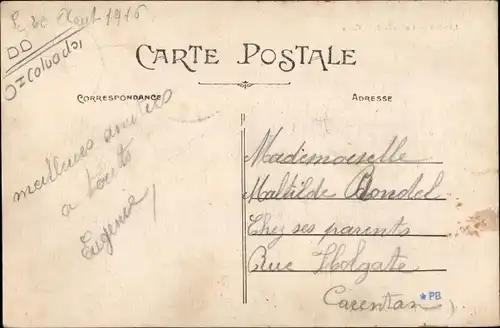 Le 20 Aout 1916
DD
Calvados
CARTE POSTALE
CORRESPONDANCE
ADRESSE
meilleures amitiés
a touts
Eugénie
Mademoiselle
Maltilde Blondel
Chez ses parents
Rue Holgate
Carentan
*PB